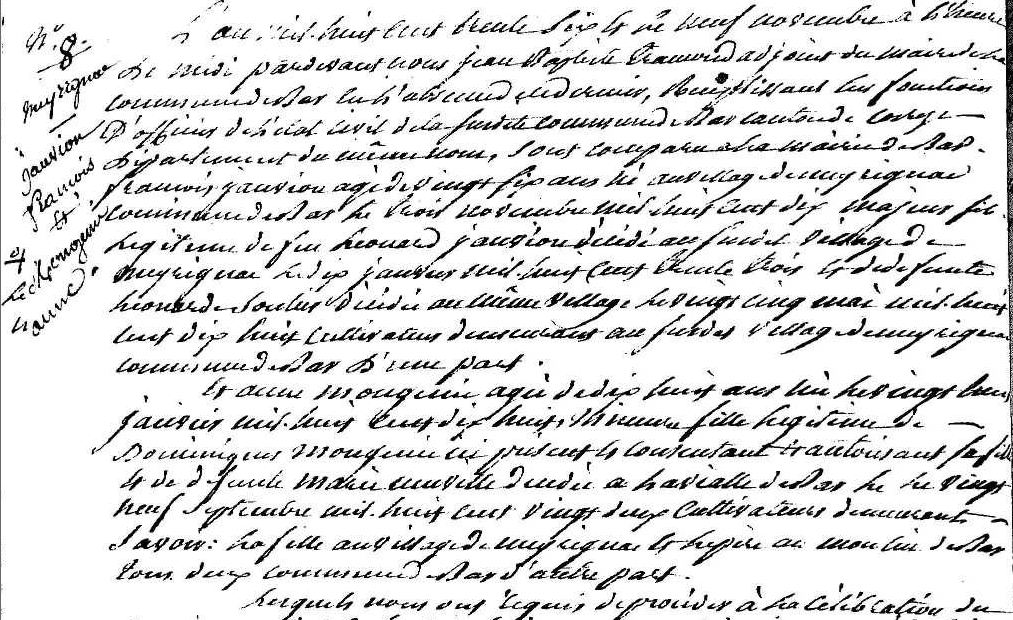 N° 8.
meyrignac
jauvion
francois
et
mongenie
anne
L'an mil huit cent trente six et le neuf novembre à l'heure
de midi pardevant nous jean Baptiste Tramond adjoint du maire de la
commune de Bar en l'absence de dernier, Remplissant les fonctions
D'officier de l'état civil de la susdite commune de Bar canton de Correze
Département du même nom, sont comparu a la mairie de Bar
francois jauvion agé de vingt six ans né au village de meyrignac
commune de Bar le trois novembre mil huit cent dix majeur fils
legitime de feu Leonard jauvion décédé au susdit village de
meyrignac le dix janvier mil huit cent trente trois et de defunte
Leonarde Soulier décédée au même village le vingt cinq mai mil huit
cent dix huit cultivateur demeurant au susdit village de meyrignac
commune de Bar d'une part.
Et anne mongenie agée de dix huit ans née le vingt
janvier mil huit cent dix huit, mineure fille legitime de
Dominique mongenie ici présent et consentant autorisant sa fille
et de defunte marie décédée a Lavialle de Bar le vingt
neuf Septembre mil huit cent vingt deux Cultivateurs demeurants
Savoir: la fille au village de meyrignac et le père au moulin de Bar
tous deux commune de Bar d'autre part.
Lesquels nous ont requis de procéder à la célébration du